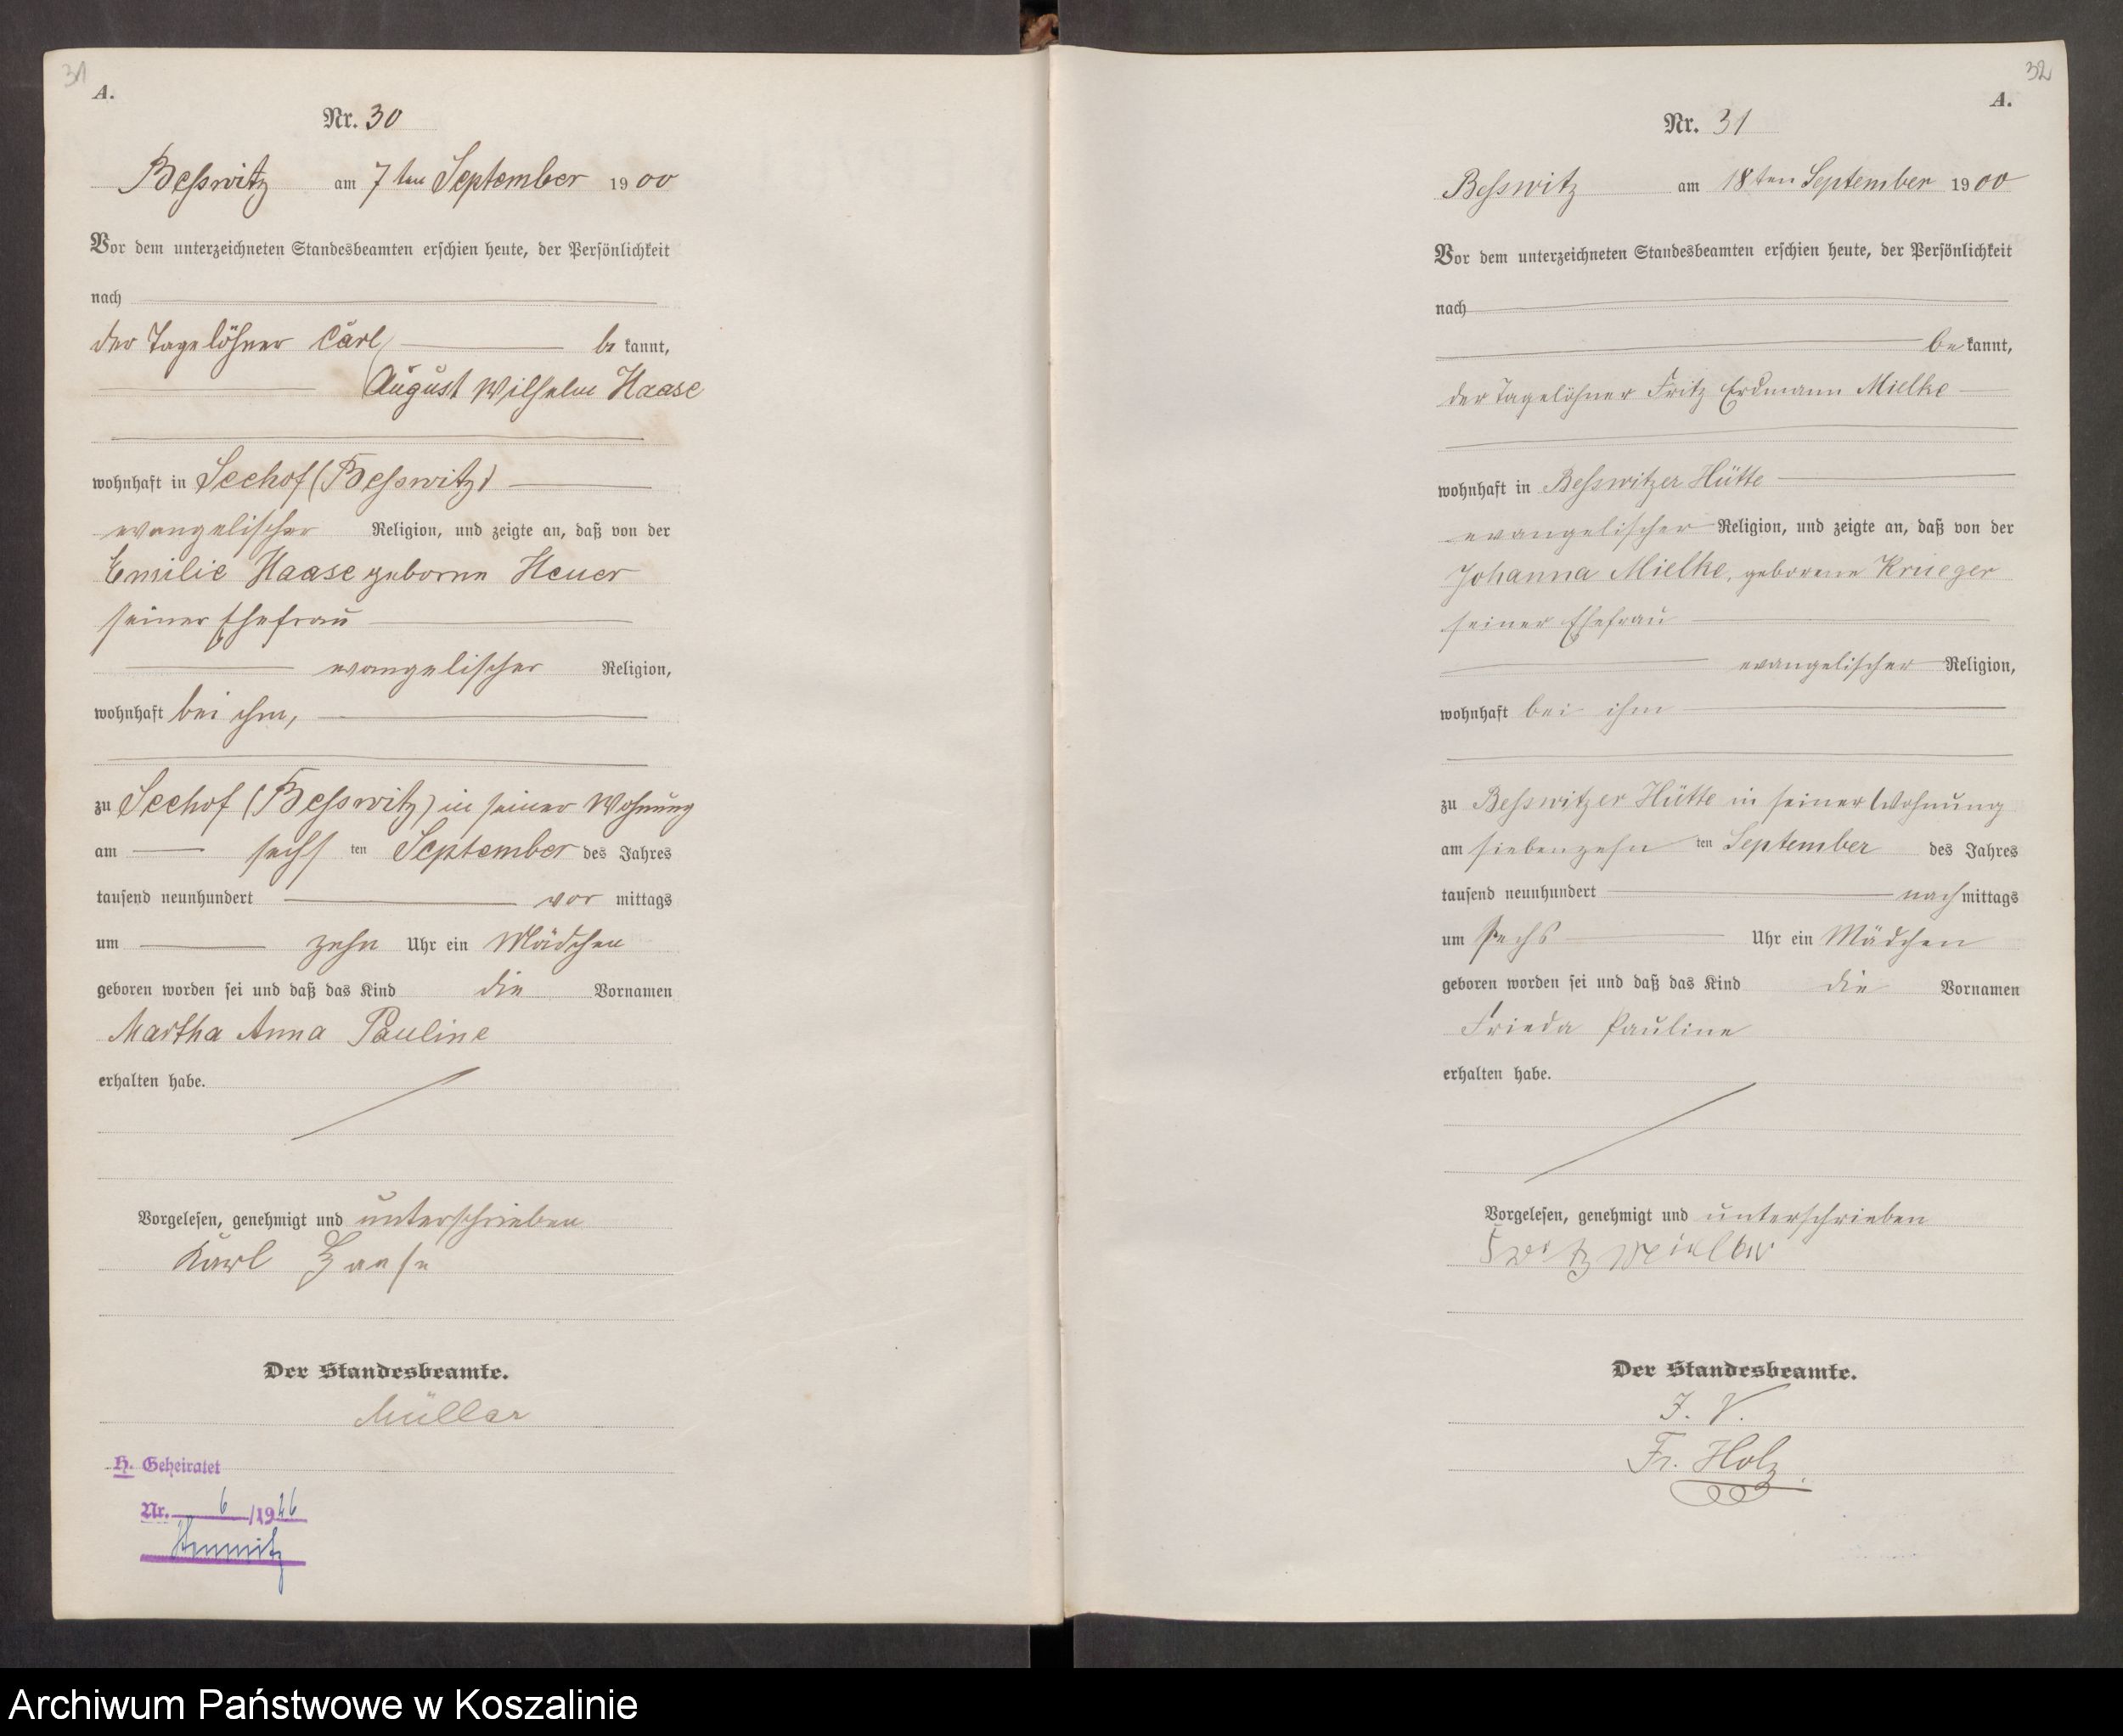 31
A.
Nr. 30
Besswitz am 7ten September 1900
Vor dem unterzeichneten Standesbeamten erschien heute, der Persönlichkeit
nach
der Tagelöhner Carl be kannt,
August Wilhelm Haase
wohnhaft in Seehof (Besswitz)
evangelischer Religion, und zeigte an, daß von der
Emilie Haase geborne Heuer
seiner Ehefrau
evangelischer Religion,
wohnhaft bei ihm,
zu Seehof (Besswitz) in seiner Wohnung
am sechs ten September des Jahres
tausend neunhundert vor mittags
um zehn Uhr ein Mädchen
geboren worden sei und daß das Kind die Vornamen
Martha Anna Pauline
erhalten habe.
Vorgelesen, genehmigt und unterschrieben
Karl Haase
Der Standesbeamte.
Müller
H. Geheiratet
Nr. 6 /19
32
A.
Nr. 31
Besswitz am 18ten September 1900
Vor dem unterzeichneten Standesbeamten erschien heute, der Persönlichkeit
nach
be kannt,
der Tagelöhner Fritz Erdmann Mielke
wohnhaft in Besswitzer Hütte
evangelischer Religion, und zeigte an, daß von der
Johanna Mielke, geborene Krueger
seiner Ehefrau
evangelischer Religion,
wohnhaft bei ihm
zu Besswitzer Hütte in seiner Wohnung
am siebenzehn ten September des Jahres
tausend neunhundert nach mittags
um sechs Uhr ein Mädchen
geboren worden sei und daß das Kind die Vornamen
Frieda Pauline
erhalten habe.
Vorgelesen, genehmigt und unterschrieben
Fritz
Der Standesbeamte.
J. V.
Fr. Holz.
Archiwum Państwowe w Koszalinie